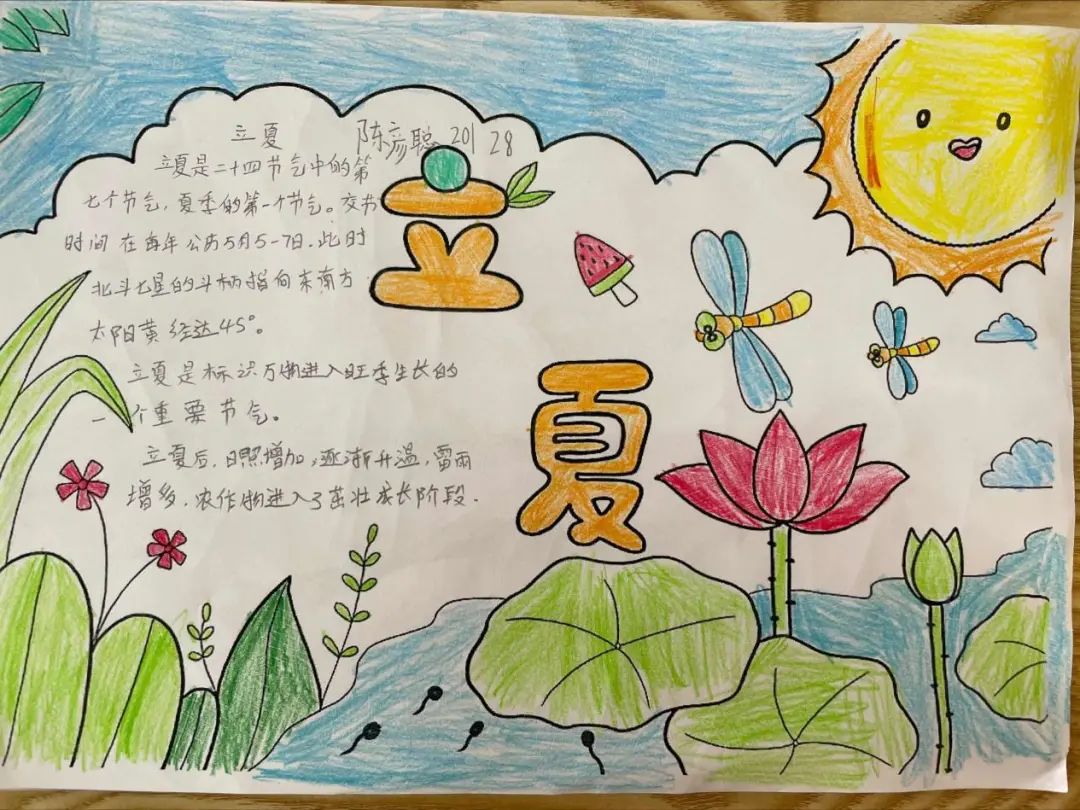 立夏 陈彦聪 20128
立夏是二十四节气中的第
七个节气，夏季的第一个节气。交节
时间在每年公历5月5-7日.此时
北斗七星的斗柄指向东南方.
太阳黄经达45°。
立夏是标识万物进入旺季生长的
一个重要节气。
立夏后，日照增加，逐渐升温，雷雨
增多，农作物进入了茁壮成长阶段.
立
夏